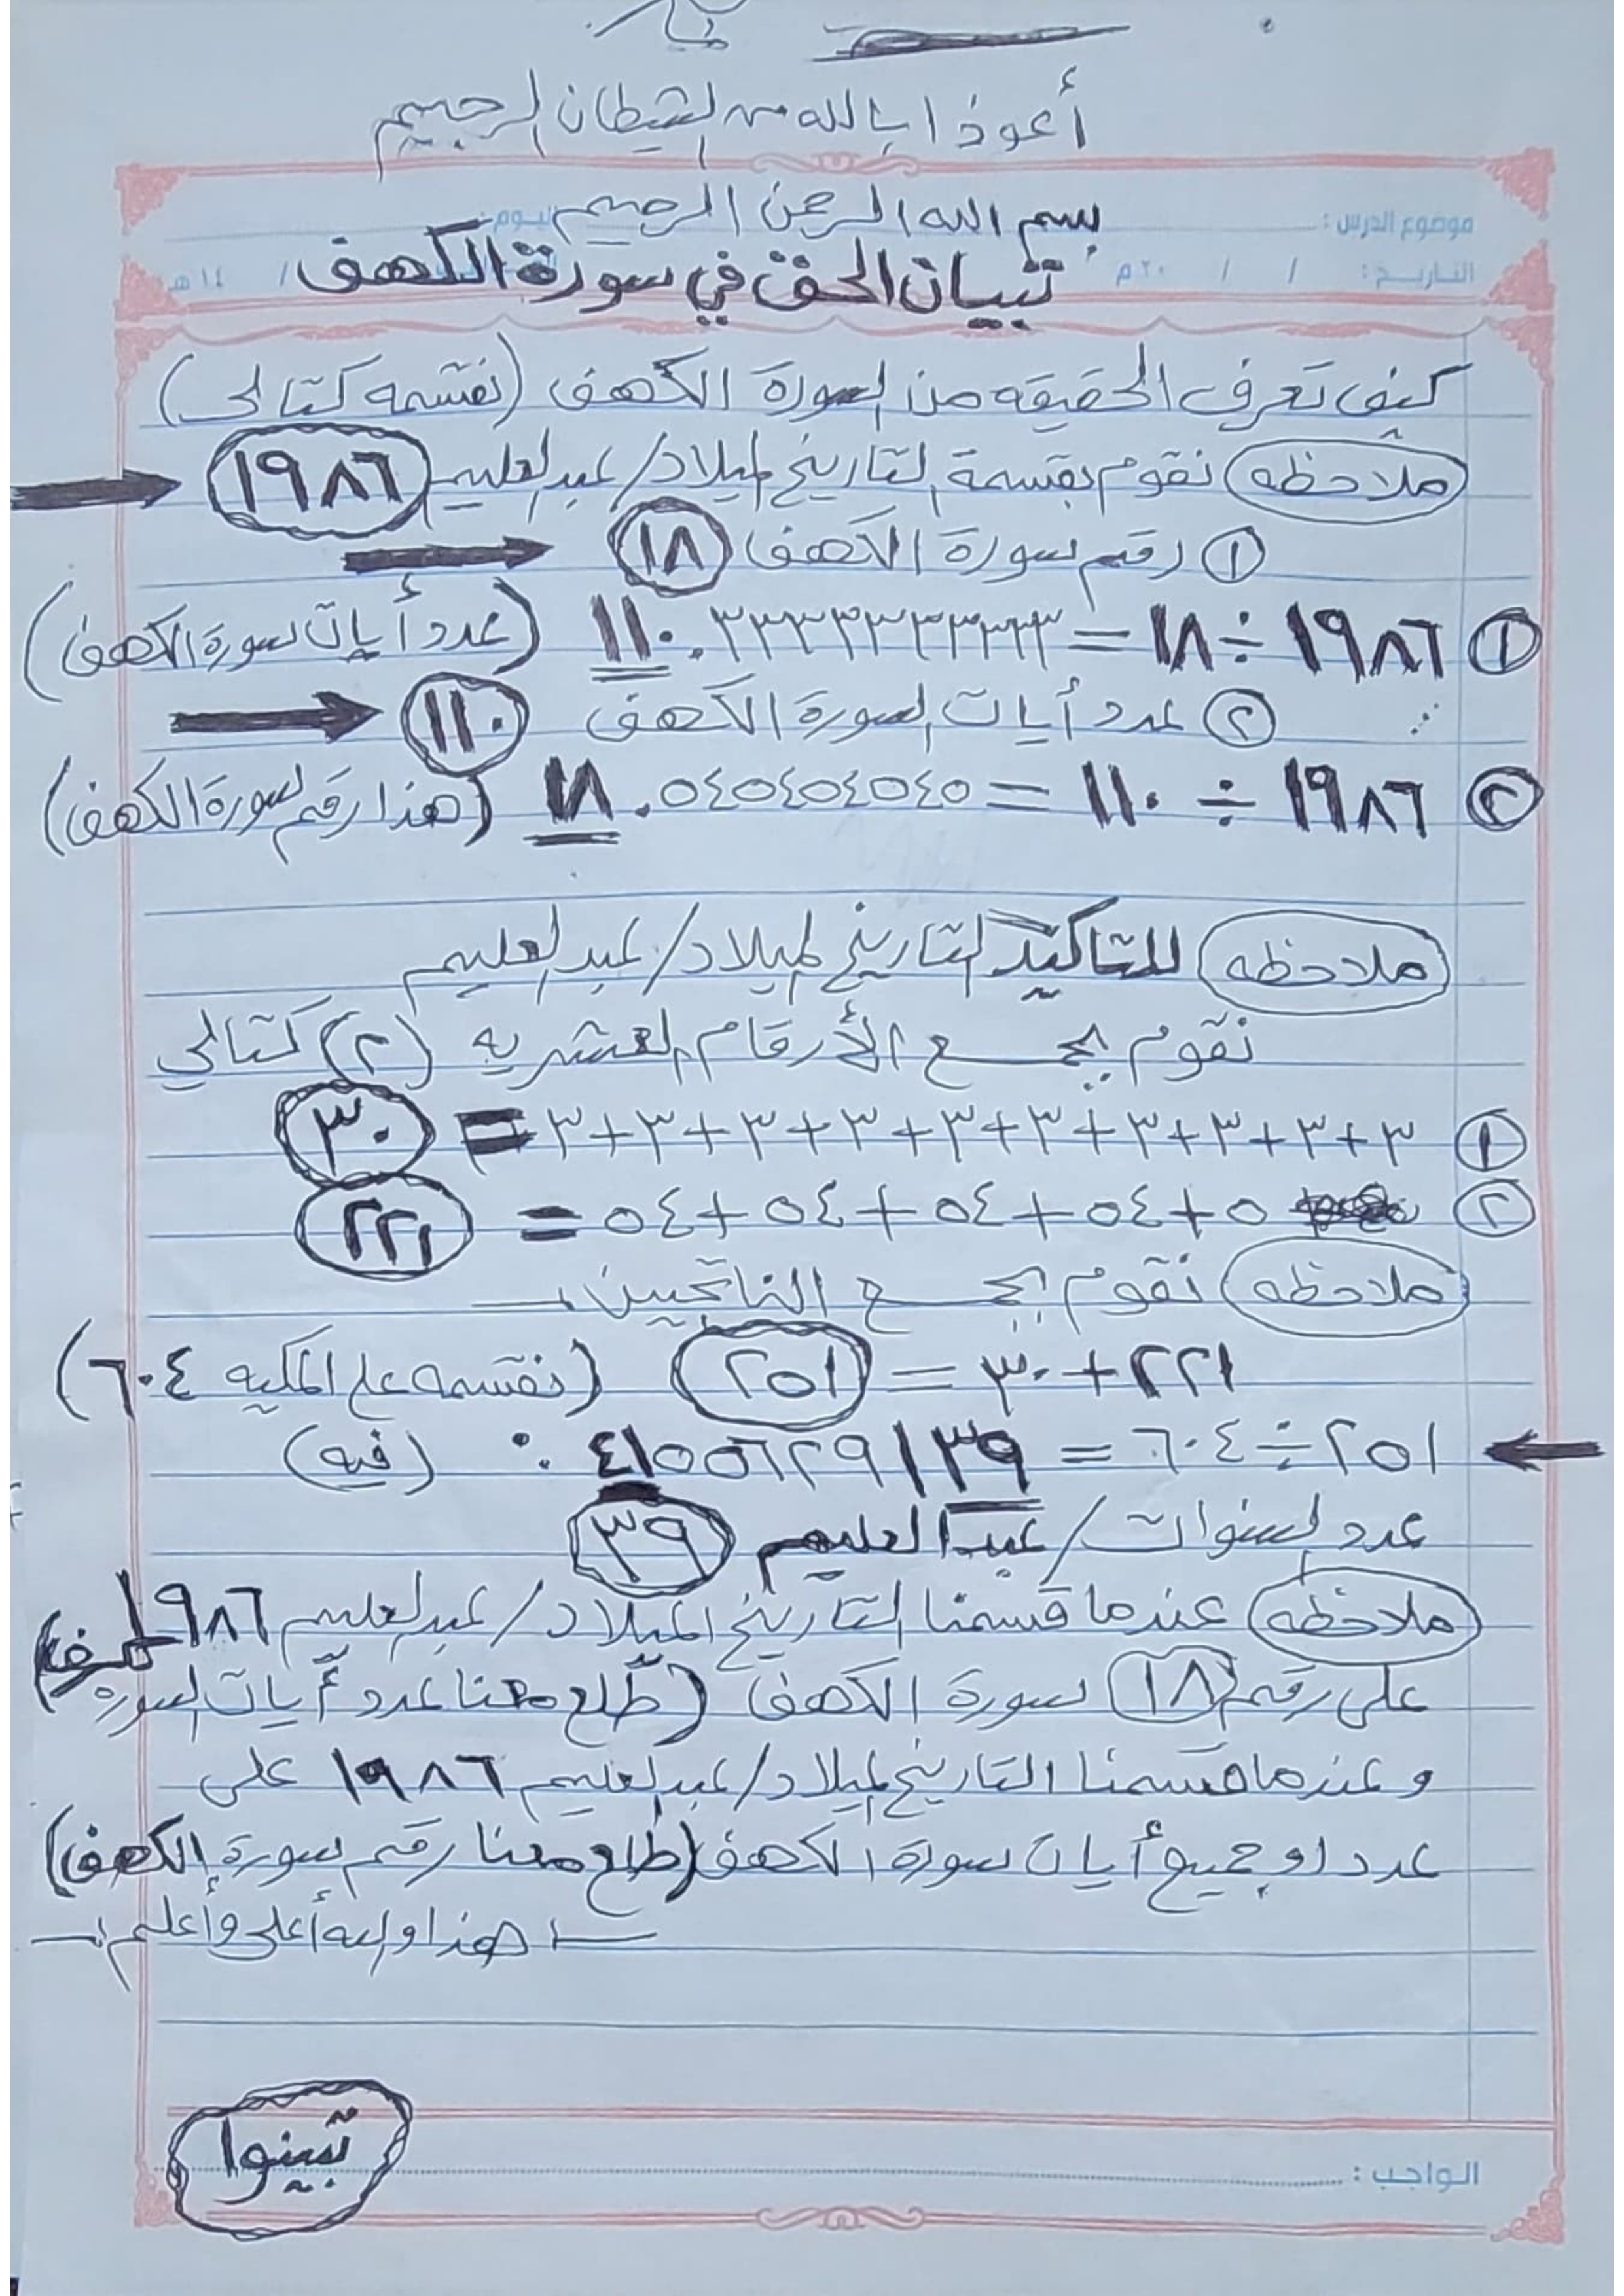 أعوذ ابالله من الشيطان الرجيم
بسم الله الرحمن الرحيم
اليوم:
موضوع الدرس :
تبيان الحق في سورة الكهف
التاريخ : / / ٢٠م / ١٤هـ
كيف تعرف الحقيقه من السورة الكهف (نقسمه كتالي)
ملاحظه نقوم بقسمة التاريخ الميلاد/عبدالعليم ١٩٨٦
① رقم سورة الكهف ١٨
① ١٩٨٦ ÷ ١٨ = ١١٠.٣٣٣٣٣٣٣٣٣٣ (عدد أيات سورة الكهف)
② عدد أيات السورة الكهف ١١٠
② ١٩٨٦ ÷ ١١٠ = ١٨.٠٥٤٥٤٥٤٥٤٥ (هذا رقم سورة الكهف)
ملاحظه للتاكيد التاريخ الميلاد/عبدالعليم
نقوم بجمع الأرقام العشريه (٢) كتالي
① ٣+٣+٣+٣+٣+٣+٣+٣+٣+٣ = ٣٠
② ٥+٥٤+٥٤+٥٤+٥٤ = ٢٢١
ملاحظه نقوم بجمع الناتجين
٢٢١+٣٠ = ٢٥١ (نقسمه على المكيه ٦٠٤)
٢٥١÷٦٠٤ = ٤١٥٥٦٢٩١٣٩. (فيه)
عدد سنوات/عبدالعليم ٣٩
ملاحظه عندما قسمنا التاريخ الميلاد/عبدالعليم ١٩٨٦
على رقم ١٨ سورة الكهف (طلع معنا عدد أيات السوره الكهف)
وعندما قسمنا التاريخ الميلاد/عبدالعليم ١٩٨٦ على
عدد او جميع أيات سورة الكهف (طلع معنا رقم سورة الكهف)
هذا والله أعلى وأعلم
تبينوا
الواجب :